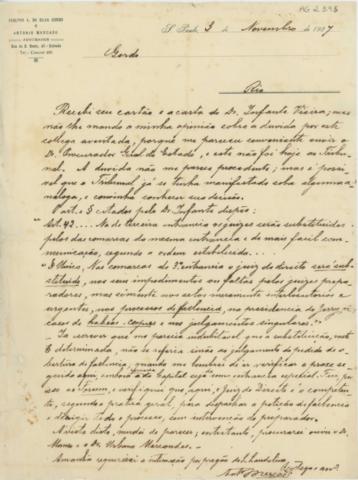 AG 2393
ADOLPHO A. DA SILVA GORDO
E
ANTONIO MERCADO
ADVOGADOS
Rua de S. Bento, 45 - Sobrado
S. Paulo, 3 de Novembro de 1907
Gordo
Rio
Recebi seu cartão e a carta do Dr. Infante Vieira; mas
não lhe mando a minha opinião sobre a duvida por este
collega aventada, porque me pareceu conveniente ouvir o
Dr. Procurador Geral do Estado, e este não foi hoje ao Tribu-
nal. A duvida não me parece procedente; mas é possi-
vel que o Tribunal já se tenha manifestado sobre alguma a-
naloga, e convinha conhecer sua decisão.
O art. citado pelo Dr. Infante dispõe:
"Art. 42... Na de terceira entrancia os juizes serão substituidos
pelos das comarcas da mesma entrancia e de mais facil com-
municação, segundo a ordem estabelecida...
"§ Unico. Nas comarcas de 3ª entrancia o juiz de direito será sub-
stituido, nos seus impedimentos ou faltas pelos juizes prepa-
radores, mas sómente nos actos meramente interlocutorios e
urgentes, nos processos de fallencia, na presidencia do jury, nos
casos de habeas-corpus e nos julgamentos singulares."
Ia escrever que me parecia indubitavel que a substituição, neste
§ determinada, não se referia senão ao julgamento do pedido de a-
bertura de fallencia, quando me lembrei de ir verificar o processo se-
guido
verifiquei que aqui, o juiz de Direito é o competen-
te, segundo a praxe geral, para despachar a petição de fallencia
e dirigir todo o processo, sem intervenção do preparador.
Á vista disto, mudei de parecer; entretanto, procurarei ouvir o Dr.
e o Dr. Urbano Marcondes.
Amanhã requererei a intimação